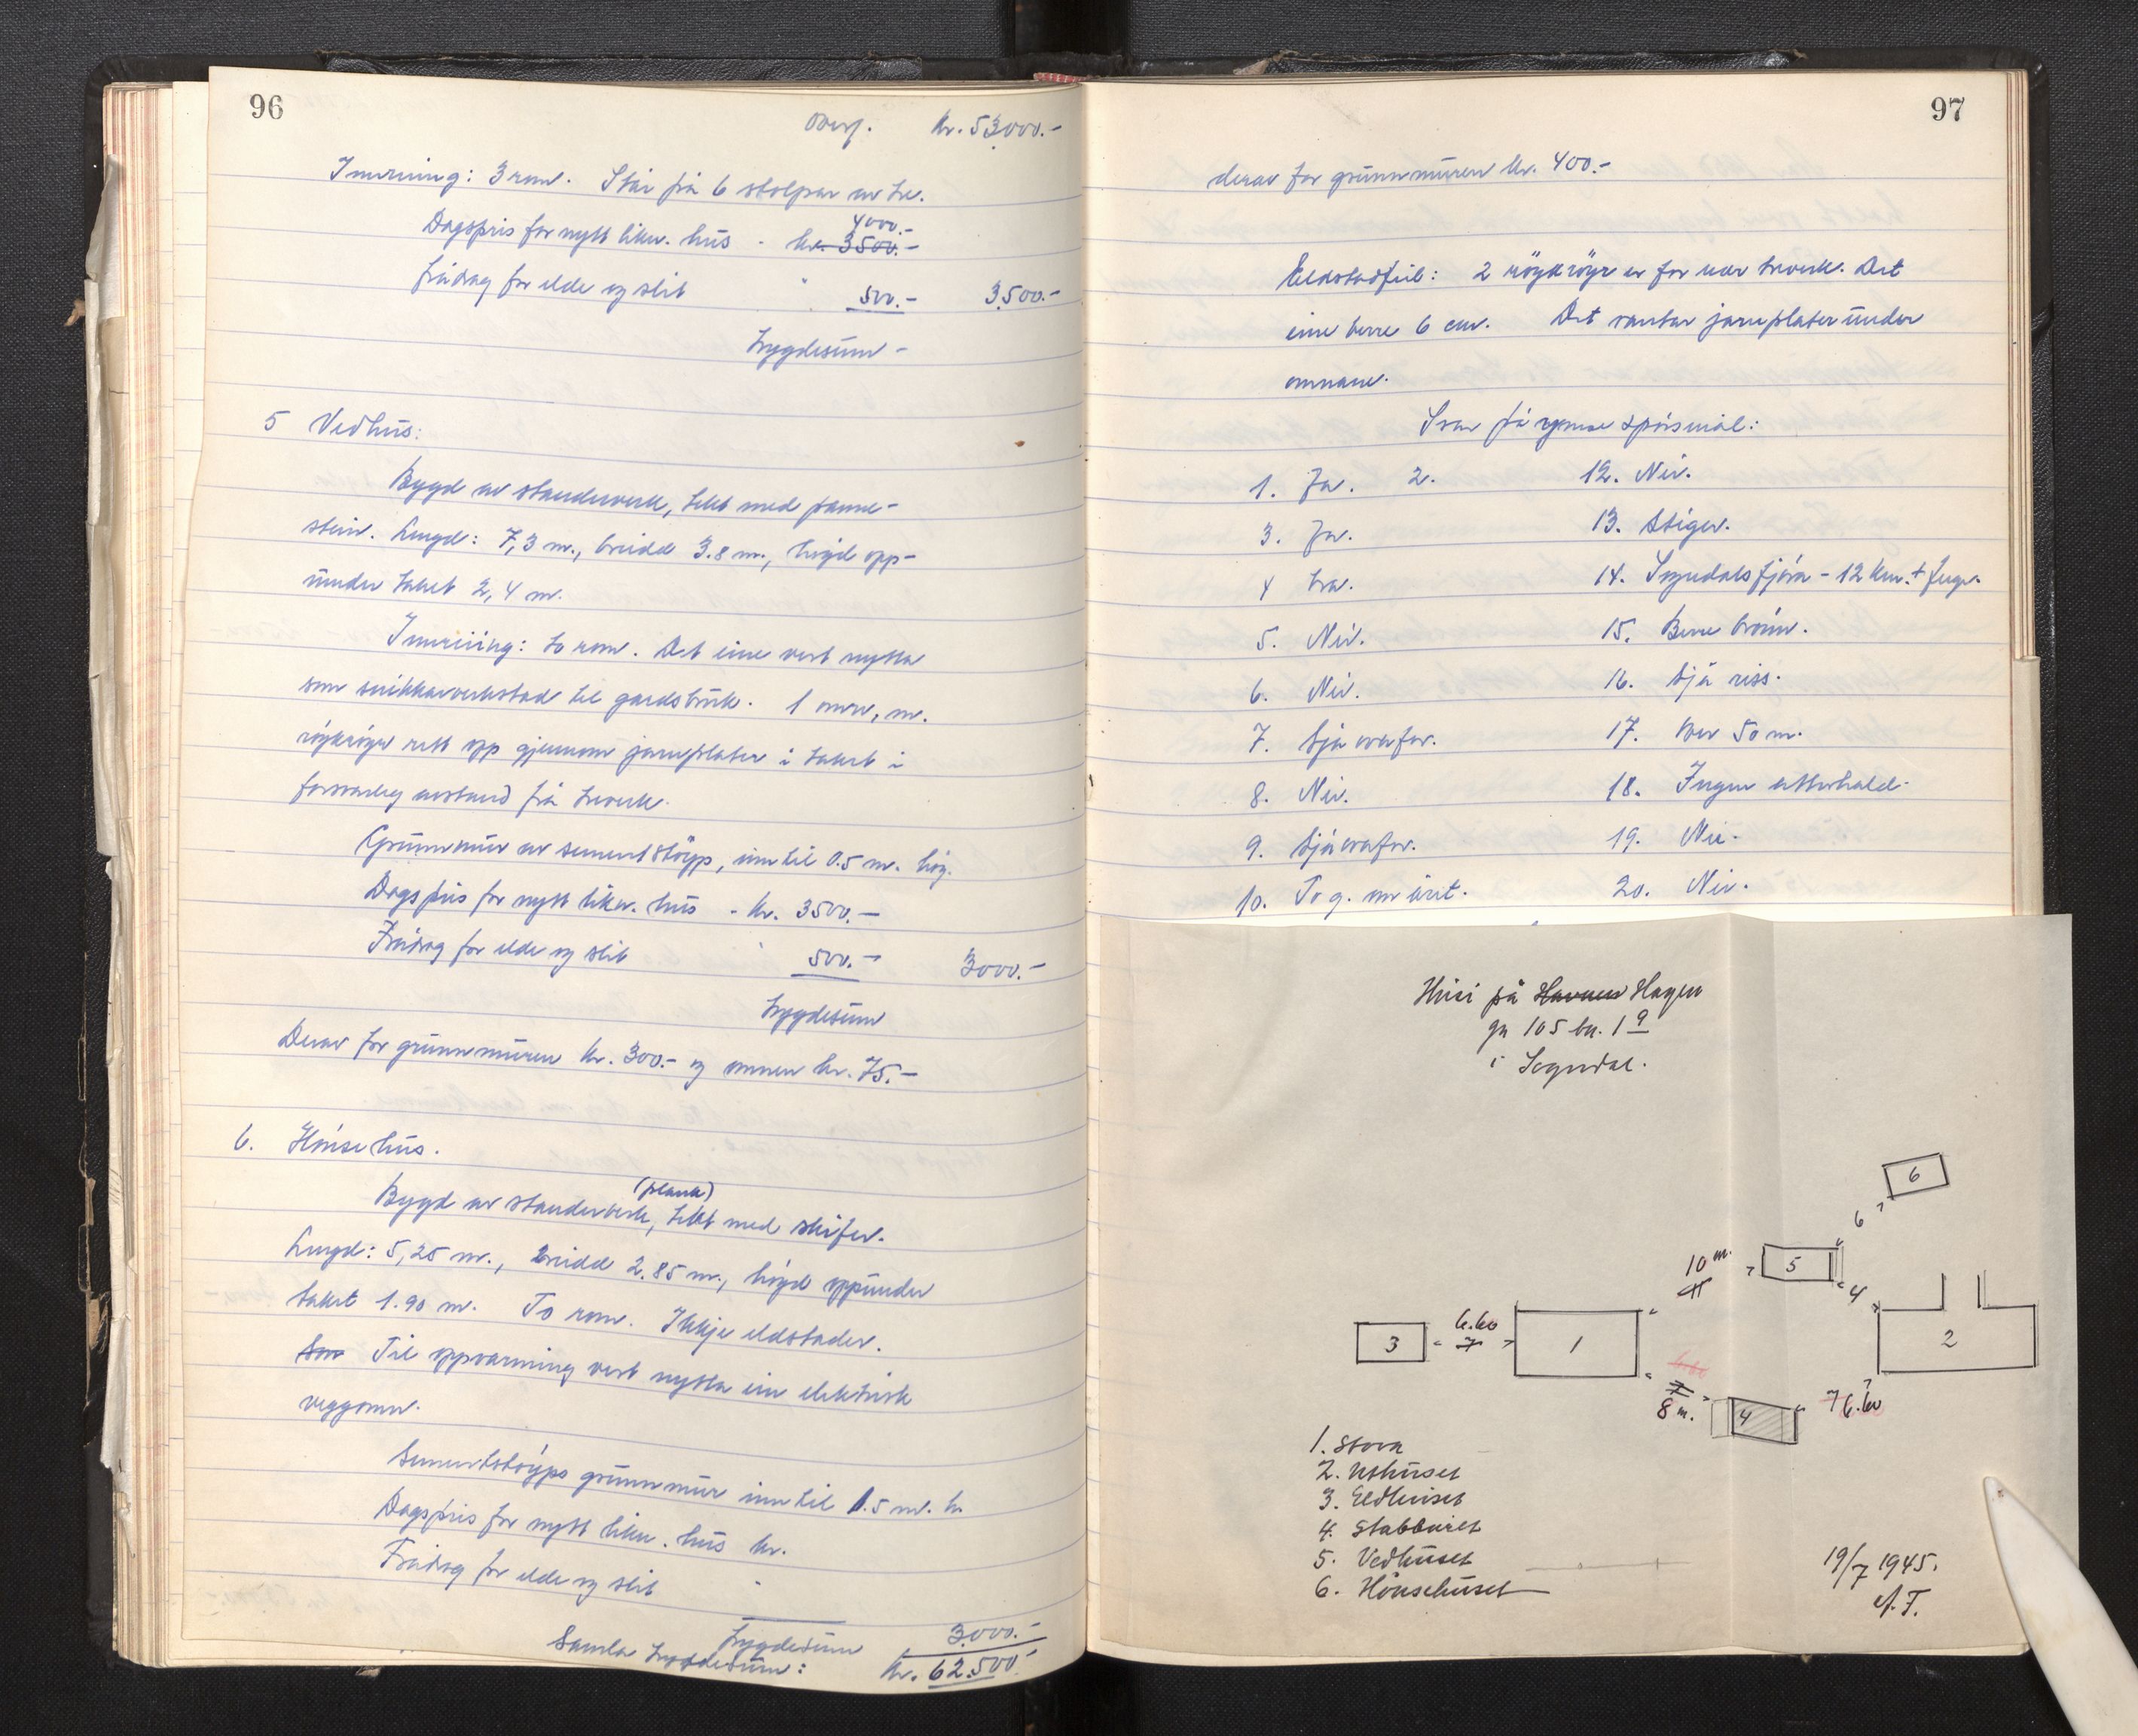 96
Overf. kr. 53000.-
Innreiing: 3 rom. Står på 6 stolpar av tre.
4000.-
Dagspris for nytt likn. hus - kr. 3500.-
Frådrag for elde og slit " 500.- 3.500.-
Trygdesum -
5 Vedhus:
Bygd av standerverk, tekt med panne-
stein. Lengd: 7,3 m., breidd 3.8 m., høgd opp-
under taket 2,4 m.
Innreiing: to rom. Det eine vert nytta
som snikkarverkstad til gardsbruk. 1 omn, m.
røykrøyr rett opp gjennom jarnplater i taket i
forsvarleg avstand frå treverk.
Grunnmur av sementstøyp, inntil 0.5 m. høg.
Dagspris for nytt likn. hus - kr. 3500.-
Frådrag for elde og slit " 500.- 3000.-
Trygdesum
Derav for grunnmuren kr. 300.- og omnen kr. 75.-
6. Hønsehus.
(plank)
Bygd av standerverk, tekt med skifer.
Lengd: 5,25 m., breidd 2.85 m., høgd oppunder
taket 1.90 m. To rom. Ikkje eldstader.
Som Til oppvarming vert nytta ein elektrisk
veggomn.
Sementstøyps grunnmur inntil 1.5 m. h.
Dagspris for nytt likn. hus kr.
Frådrag for elde og slit "
Trygdesum 3.000.-
Samla trygdesum: kr. 62.500.-
97
derav for grunnmuren kr. 400.-
Eldstadfeil: 2 røykrøyr er for nær treverk. Det
eine berre 6 cm. Det vantar jarnplater under
omnane.
Svar på ymse spørsmål:
1. Ja. 2. 12. Nei.
3. Ja. 13. Stigar.
4 bra. 14. Sogndalsfjøra - 12 km. + Ingen
5. Nei. 15. Berre brønn.
6. Nei. 16. Sjå riss.
7. Sjå ovafor. 17. Over 50 m.
8. Nei. 18. Ingen atterhald.
9. Sjå ovafor. 19. Nei.
10. To g. om året. 20. Nei.
Husi på Haunen Hagen
gn 105 bn. 19
i Sogndal.
6
6
10 m.
11
5
4
3
6.60
7
1
2
7
8 m.
4
7 6.60
1. Stova
2. Uthuset
3. Eldhuset
4. Stabburet
5. Vedhuset
6. Hønsehuset
19/7 1945.
A.T.